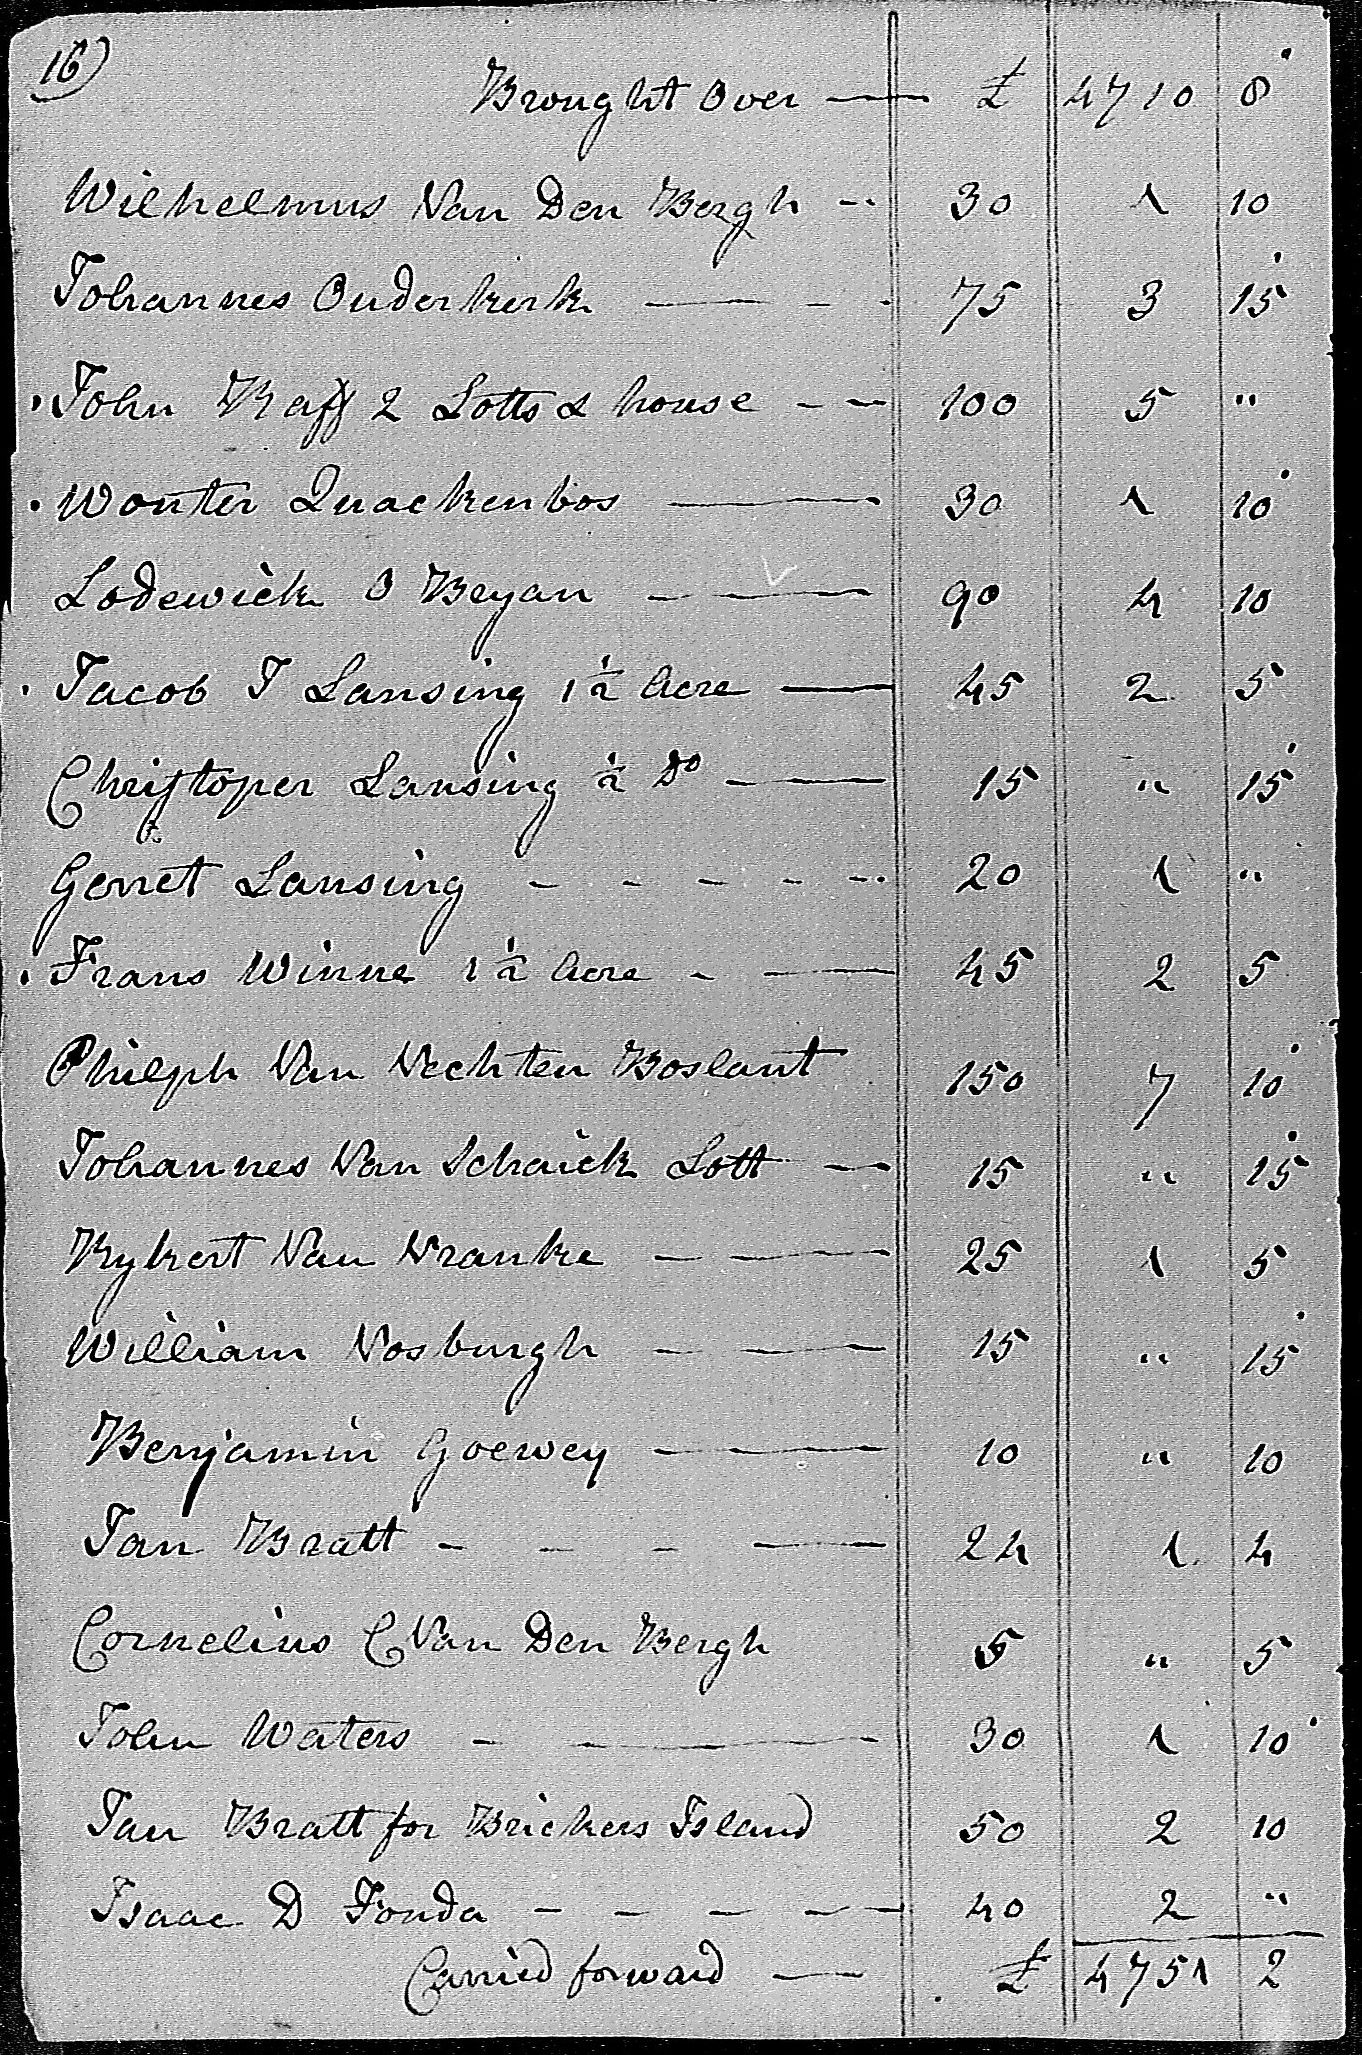 16)
Brought Over — £ 4710 8
Wilhelmus Van Den Bergh -- 30 1 10
Johannes Ouderkerk — - - 75 3 15
John Raff 2 Lotts & house - — 100 5 "
Wouter Quackenbos — 30 1 10
Lodewick O Bryan - — 90 4 10
Jacob J Lansing 1 1/2 Acre — 45 2 5
Christoper Lansing 1/2 Do — 15 " 15
Gerret Lansing - - - - - 20 1 "
Frans Winne 1 1/2 Acre - — 45 2 5
Philyph Van Vechten Boslant 150 7 10
Johannes Van Schaick Lott — 15 " 15
Rykert Van Vranke - — 25 1 5
William Vosburgh - — 15 " 15
Benjamin Goewey - — 10 " 10
Jan Bratt - - - — 24 1 4
Cornelius C Van Den Bergh 5 " 5
John Waters - — 30 1 10
Jan Bratt for Brickers Island 50 2 10
Isaac D Fonda - - - - — 40 2 "
Carried forward — £ 4751 2